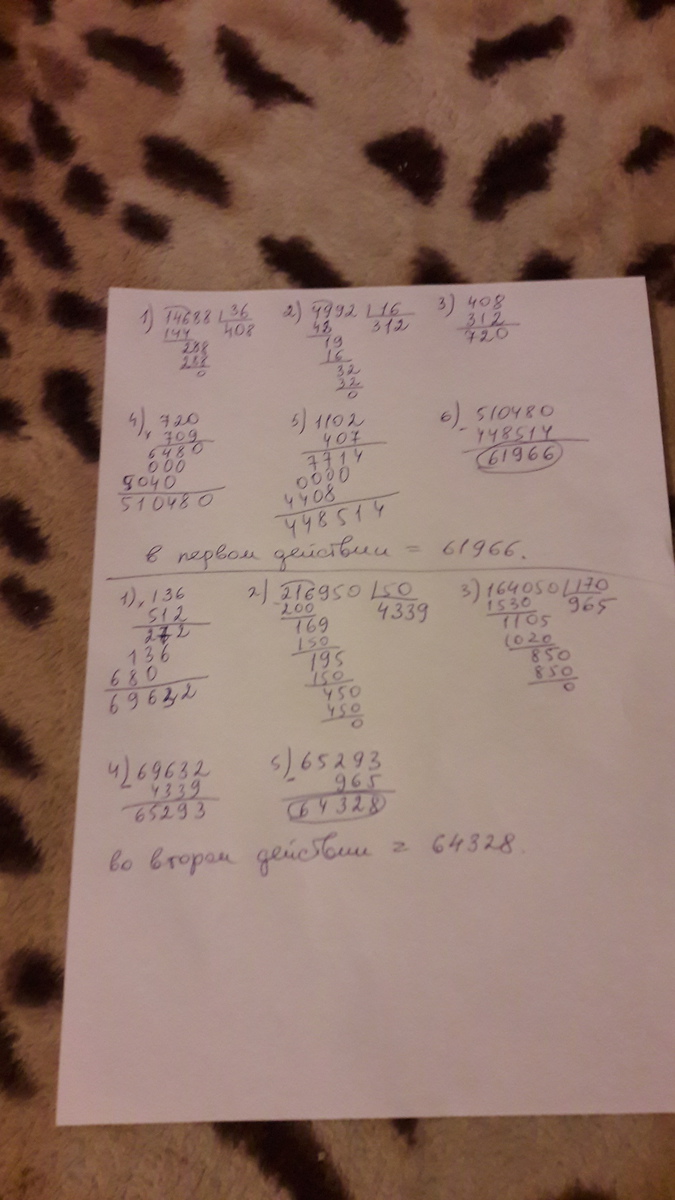 1) 14688 36
144 408
288
288
0
2) 4992 16
48 312
19
16
32
32
0
3) 408
312
720
4) 720
× 709
6480
000
5040
510480
5) 1102
407
7714
0000
4408
448514
6) 510480
- 448514
61966
в первом действии = 61966.
1) × 136
512
272
136
680
69632
2) 216950 50
200 4339
169
150
195
150
450
450
0
3) 164050 170
1530 965
1105
1020
850
850
0
4) 69632
- 4339
65293
5) 65293
- 965
64328
во втором действии = 64328.